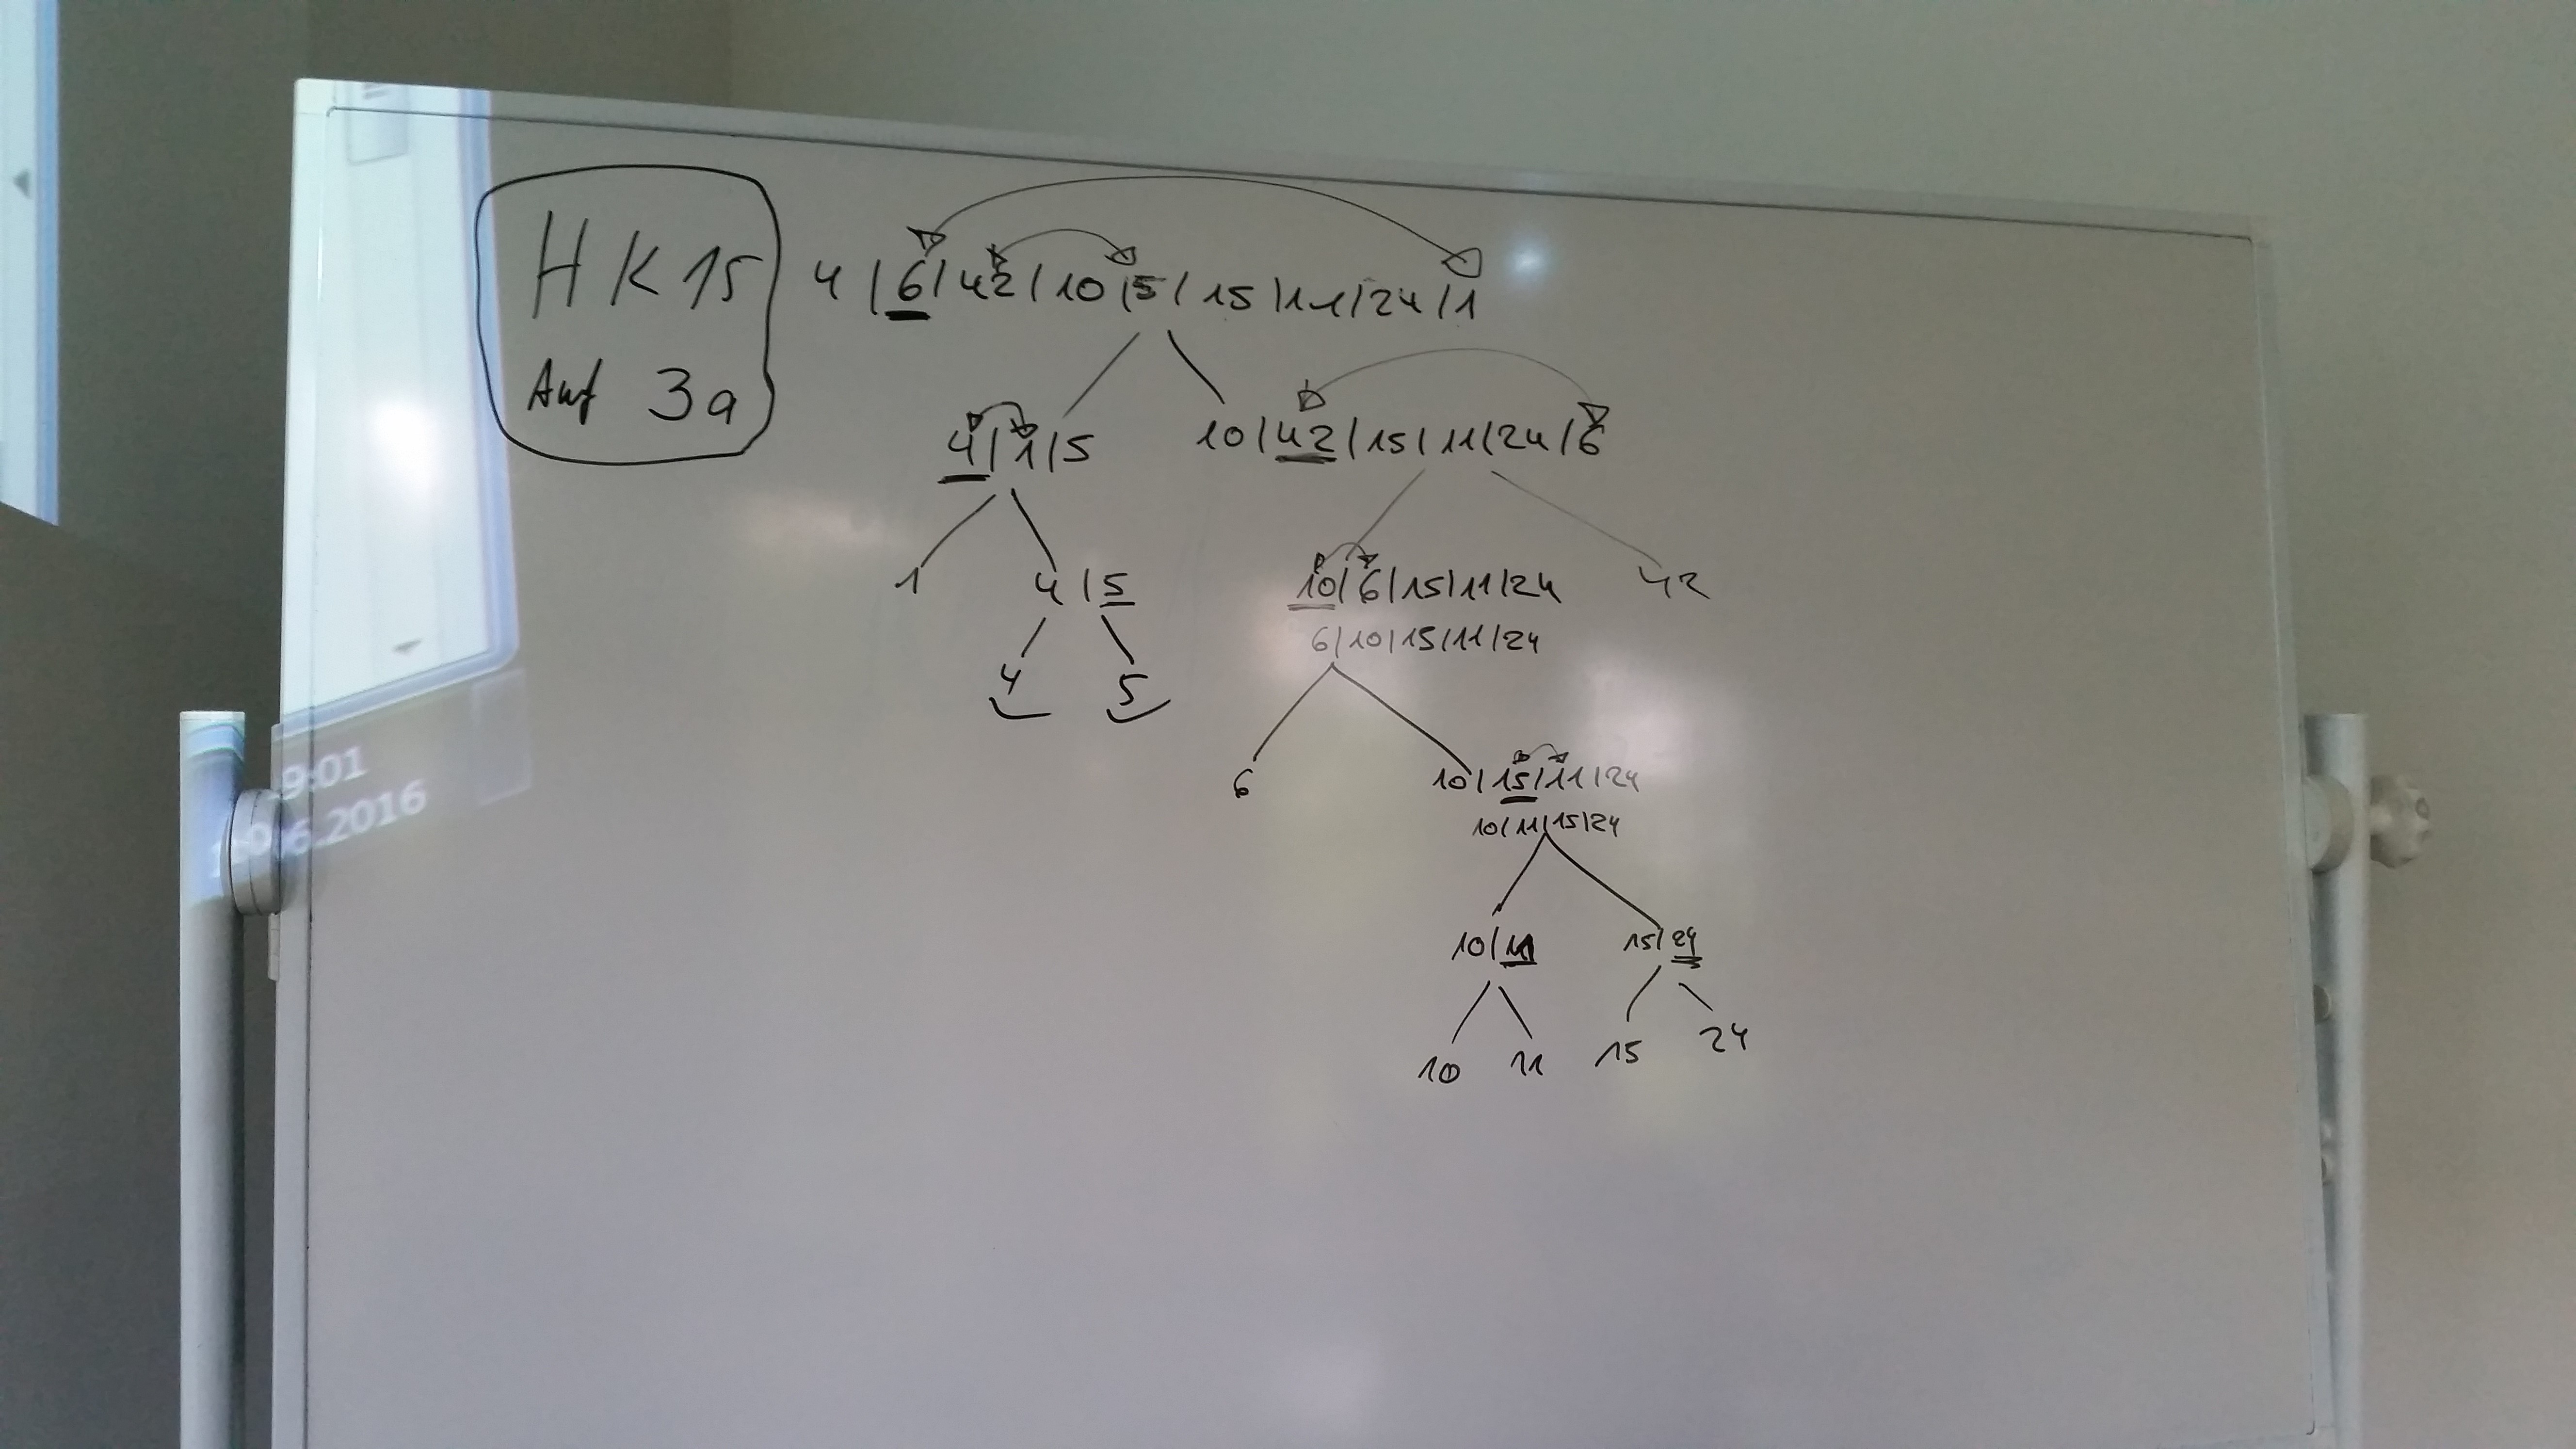 HK15
Auf 3a
4 | 6 | 42 | 10 | 5 | 15 | 11 | 24 | 1
4 | 1 | 5
10 | 42 | 15 | 11 | 24 | 6
1
4 | 5
10 | 6 | 15 | 11 | 24
42
6 | 10 | 15 | 11 | 24
4
5
6
10 | 15 | 11 | 24
10 | 11 | 15 | 24
10 | 11
15 | 24
10
11
15
24
9:01
6.2016